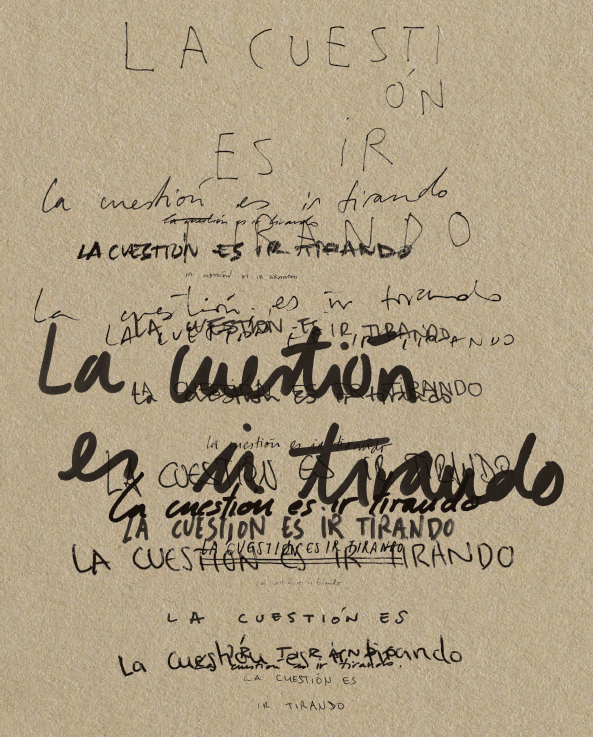 LA CUESTI
ÓN
ES IR
La cuestión es ir tirando
la cuestión es ir tirando
TIRANDO
LA CUESTIÓN ES IR TIRANDO
LA CUESTIÓN ES IR TIRANDO
La cuestión es ir tirando
LA CUESTIÓN ES IR TIRANDO
LA CUESTIÓN ES IR TIRANDO
La cuestión
LA CUESTIÓN ES IR TIRANDO
La cuestión es ir tirando
la cuestión es ir tirando
LA CUESTIÓN ES IR TIRANDO
es ir tirando
La cuestion es ir tirando
LA CUESTION ES IR TIRANDO
LA CUESTION ES IR TIRANDO
LA CUESTIÓN ES IR TIRANDO
LA CUESTIÓN ES
IR TIRANDO
La cuestión es ir tirando
La cuestión es ir tirando.
LA CUESTIÓN ES
IR TIRANDO